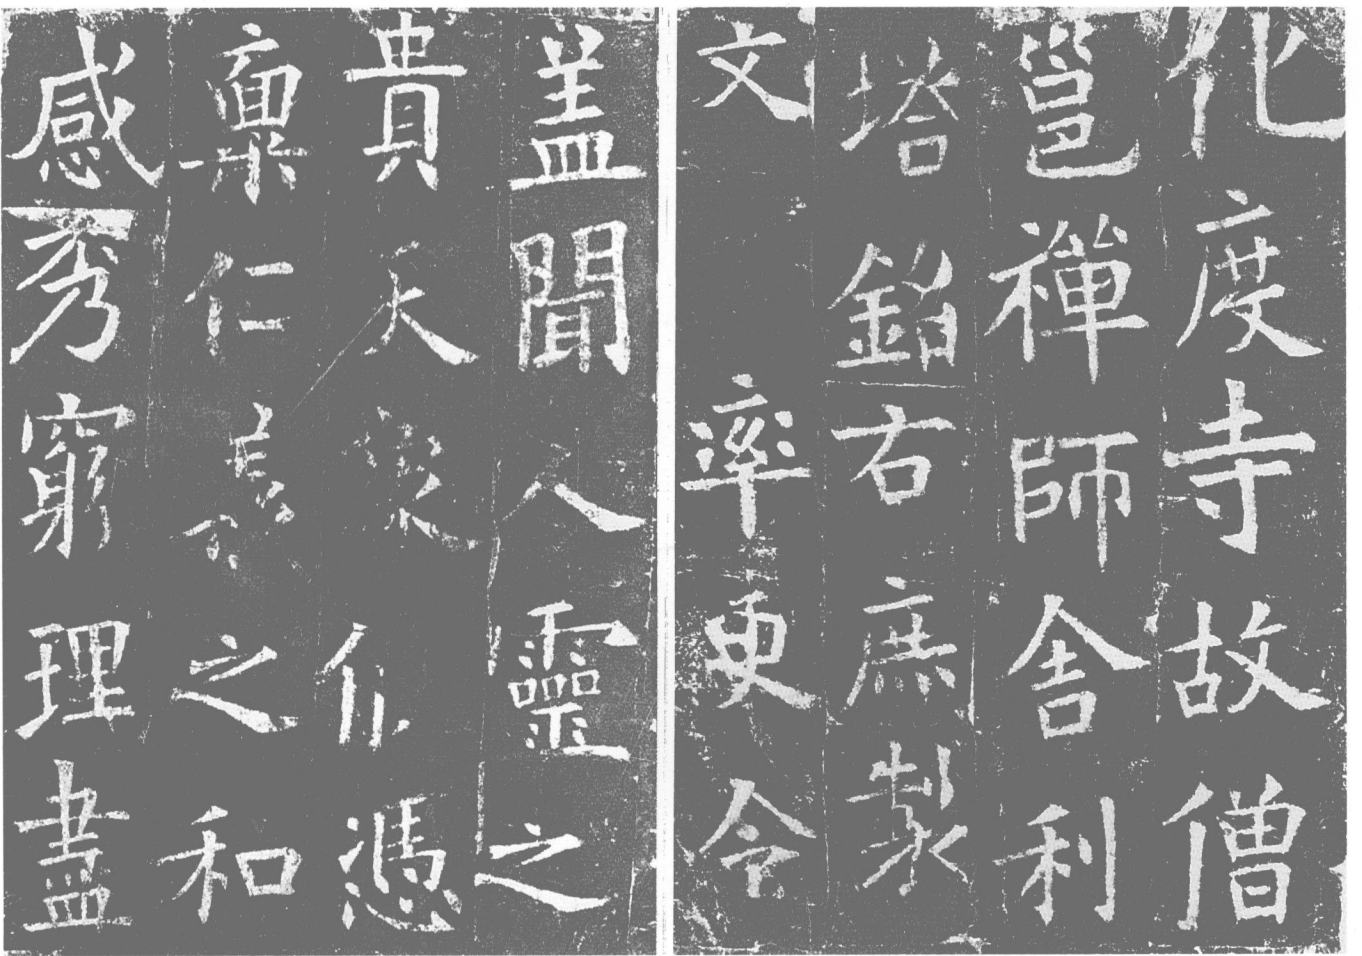 化度寺故僧
邕禪師舍利
塔銘右庶製
文 率更令
盖聞人靈之
貴天象憑
稟仁義之和
感秀窮理盡